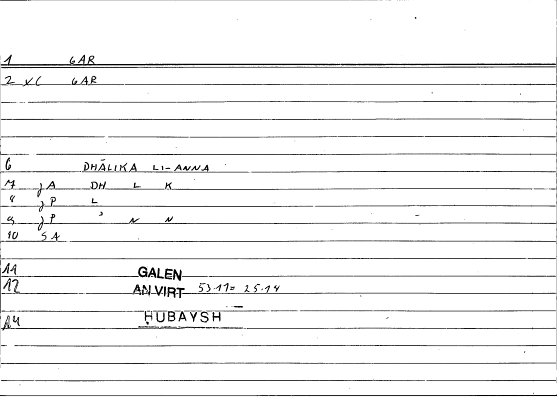 1 GAR
2 VC GAR
6 DHĀLIKA LI-ANNA
7 jA DH L K
8 jP L
9 jP ʾ N N
10 SA
11 GALEN
12 AN VIRT 53.11= 25.14
14 ḤUBAYSH